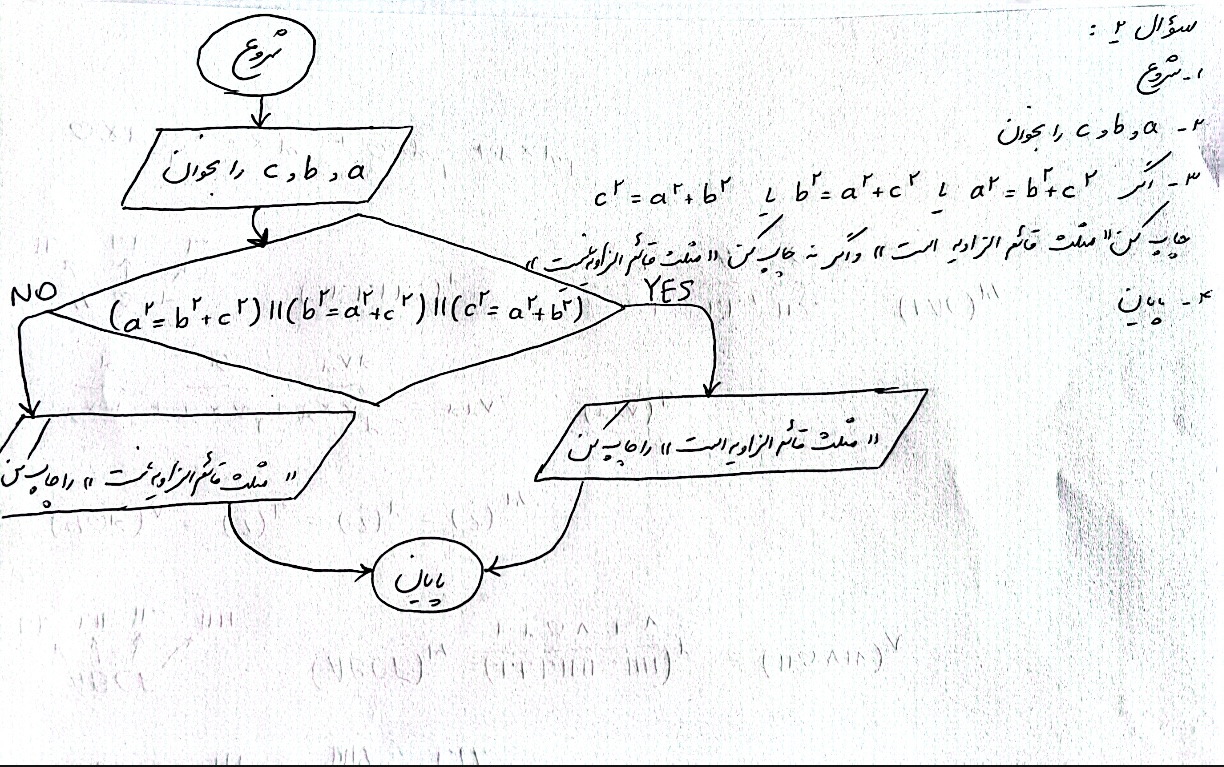 سؤال ۲ :
۱- شروع
۲- a و b و c را بخوان
۳- اگر a²=b²+c² یا b²=a²+c² یا c²=a²+b²
چاپ کن « مثلث قائم الزاویه است » و اگر نه چاپ کن « مثلث قائم الزاویه نیست »
۴- پایان
شروع
a و b و c را بخوان
(a²=b²+c²)||(b²=a²+c²)||(c²=a²+b²)
YES
NO
« مثلث قائم الزاویه است » را چاپ کن
« مثلث قائم الزاویه نیست » را چاپ کن
پایان